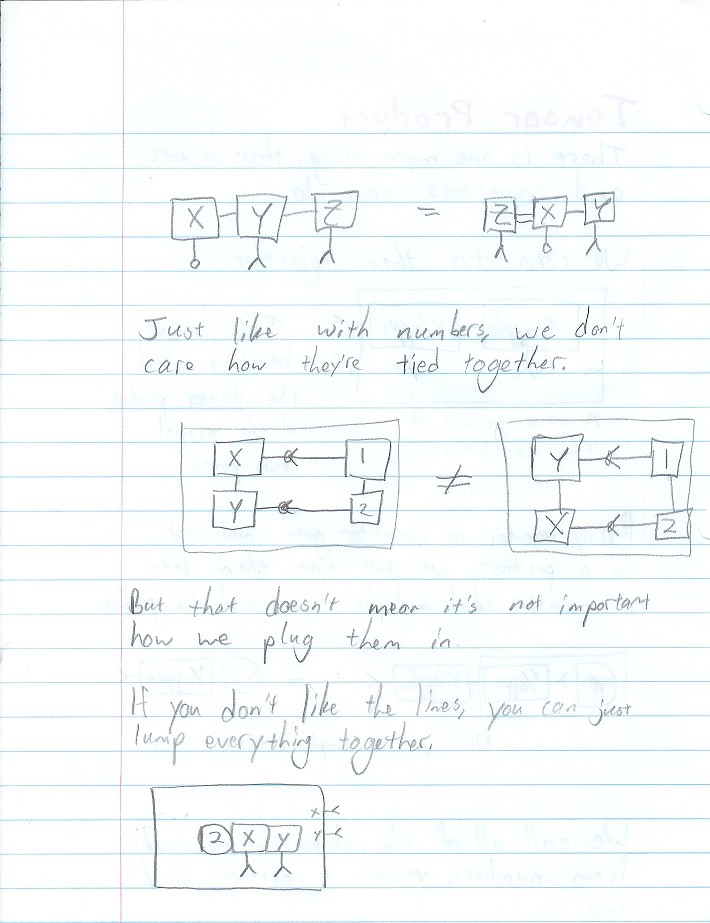 X Y Z = Z X Y
Just like with numbers, we don't
care how they're tied together.
X 1 ≠ Y 1
Y 2 X 2
But that doesn't mean it's not important
how we plug them in.
If you don't like the lines, you can just
lump everything together.
x
2 X Y y